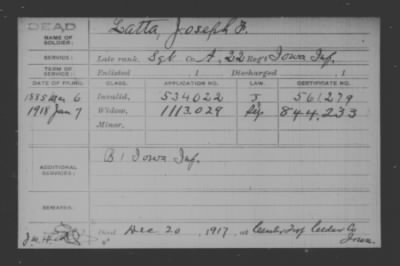 DEAD
NAME OF SOLDIER: Latta, Joseph F.
SERVICE: Late rank, Sgt Co. A, 22 Reg't Iowa Inf.
TERM OF SERVICE: Enlisted , 1 Discharged , 1
DATE OF FILING. CLASS. APPLICATION NO. LAW. CERTIFICATE NO.
1885 Mar 6 Invalid, 534022 J 561279
1918 Jan 7 Widow, 1113.029 844,233
Minor,
ADDITIONAL SERVICES: B 1 Iowa Inf.
REMARKS:
Died Dec 20, 1917, at Cedar Co
Iowa.